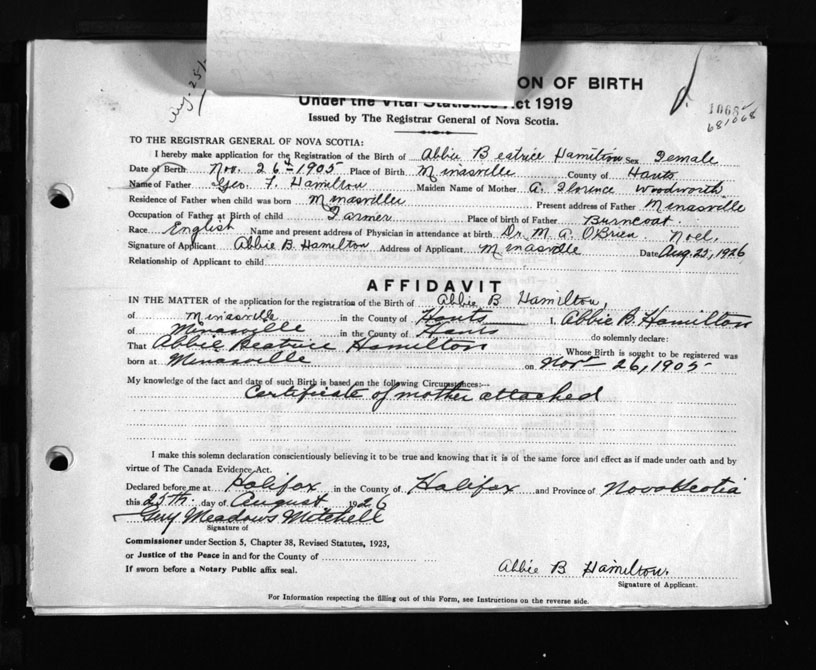 ON OF BIRTH
Under the Vital Statistics Act 1919
Issued by The Registrar General of Nova Scotia.
Aug. 25/
1068
681068
TO THE REGISTRAR GENERAL OF NOVA SCOTIA:
I hereby make application for the Registration of the Birth of Abbie Beatrice Hamilton Sex Female
Date of Birth Nov. 26th 1905 Place of Birth Minasville County of Hants
Name of Father Geo. F. Hamilton Maiden Name of Mother A. Florence Woodworth
Residence of Father when child was born Minasville Present address of Father Minasville
Occupation of Father at Birth of child Farmer Place of birth of Father Burncoat.
Race English Name and present address of Physician in attendance at birth Dr. M. A. O'Brien. Noel.
Signature of Applicant Abbie B. Hamilton Address of Applicant Minasville Date Aug. 25, 1926
Relationship of Applicant to child
AFFIDAVIT
IN THE MATTER of the application for the registration of the Birth of Abbie B Hamilton,
of Minasville in the County of Hants I, Abbie B. Hamilton
of Minasville in the County of Hants do solemnly declare:
That Abbie Beatrice Hamilton Whose Birth is sought to be registered was
born at Minasville on Nov 26, 1905
My knowledge of the fact and date of such Birth is based on the following Circumstances:--
Certificate of mother attached
I make this solemn declaration conscientiously believing it to be true and knowing that it is of the same force and effect as if made under oath and by
virtue of The Canada Evidence Act.
Declared before me at Halifax in the County of Halifax and Province of Nova Scotia
this 25th day of August 1926
Guy Meadows Mitchell
Signature of
Commissioner under Section 5, Chapter 38, Revised Statutes, 1923,
or Justice of the Peace in and for the County of
If sworn before a Notary Public affix seal.
Abbie B Hamilton.
Signature of Applicant.
For Information respecting the filling out of this Form, see Instructions on the reverse side.